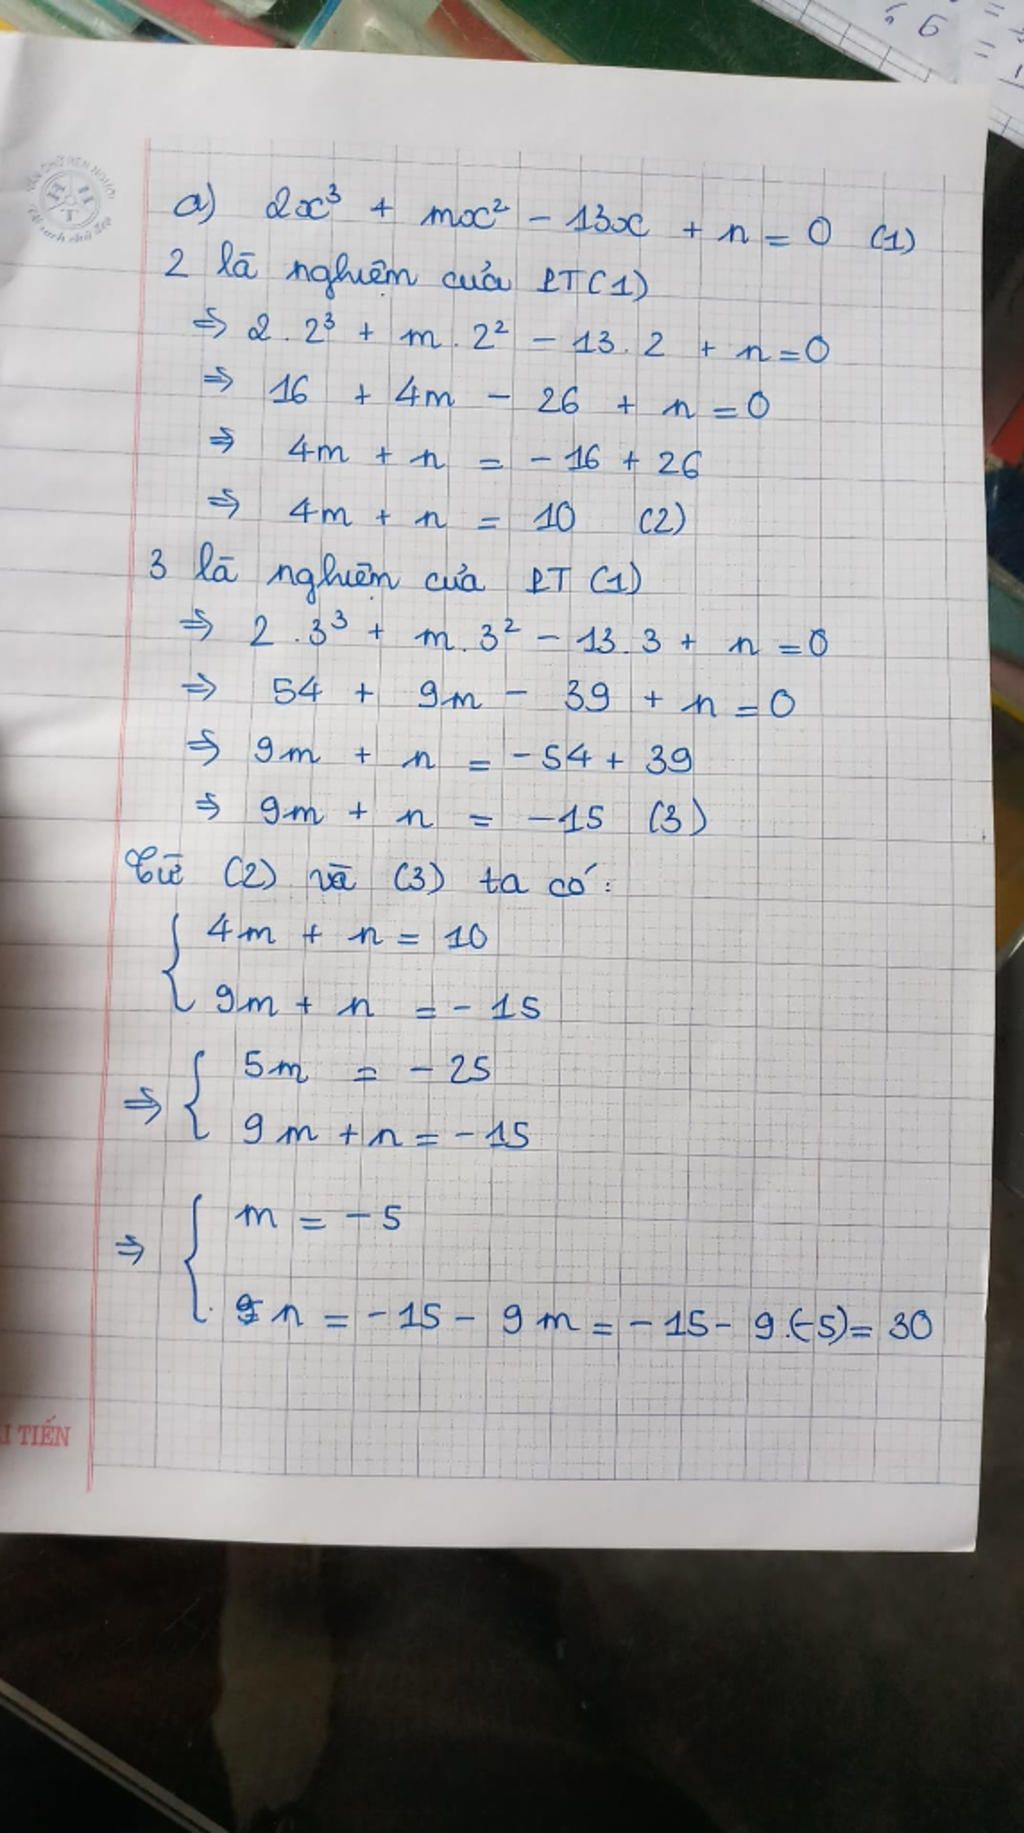 a) 2x³ + mx² - 13x + n = 0 (1)
2 là nghiệm của PT (1)
⇒ 2 . 2³ + m . 2² - 13 . 2 + n = 0
⇒ 16 + 4m - 26 + n = 0
⇒ 4m + n = - 16 + 26
⇒ 4m + n = 10 (2)
3 là nghiệm của PT (1)
⇒ 2 . 3³ + m . 3² - 13 . 3 + n = 0
⇒ 54 + 9m - 39 + n = 0
⇒ 9m + n = - 54 + 39
⇒ 9m + n = - 15 (3)
Từ (2) và (3) ta có:
{ 4m + n = 10
9m + n = - 15
⇒ { 5m = - 25
9m + n = - 15
⇒ { m = - 5
n = - 15 - 9m = - 15 - 9.(-5) = 30
I TIẾN